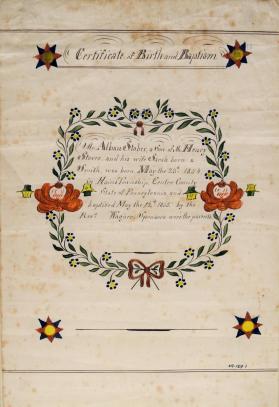 Certificate of Birth and Baptism
Alban Stover, a Son of Mr Henry
Stover, and his wife Sarah born a
Smith, was born May the 1854
in Haines Township, Center County
State of Pennsylvania, and
baptised May the 1855 by the
Revd. Wagner, Sponsors were the parents